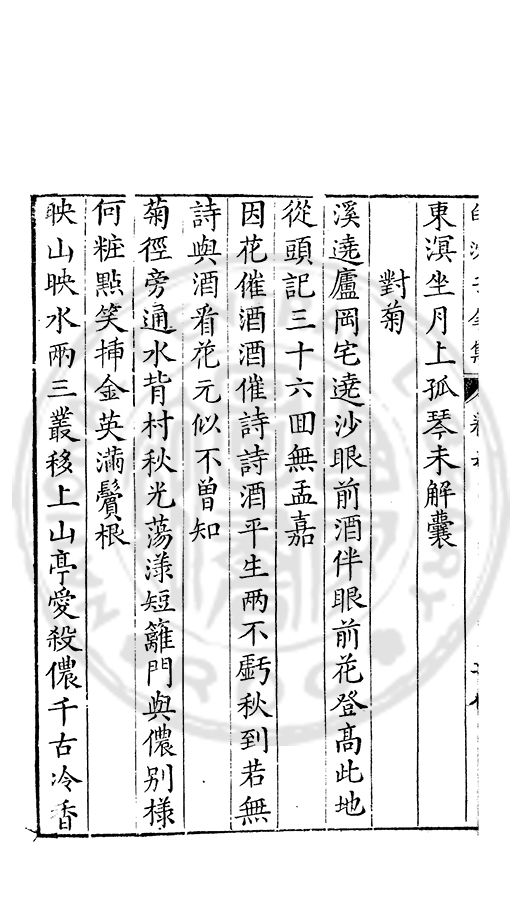 東溟坐月上孤琴未解囊
對菊
溪遶廬岡宅遶沙眼前酒伴眼前花登高此地
從頭記三十六回無孟嘉
因花催酒酒催詩詩酒平生兩不虧秋到若無
詩與酒看花元似不曾知
菊徑旁通水背村秋光蕩漾短籬門與儂別樣
何粧點笑揷金英滿鬢根
映山映水兩三叢移上山亭愛殺儂千古冷香